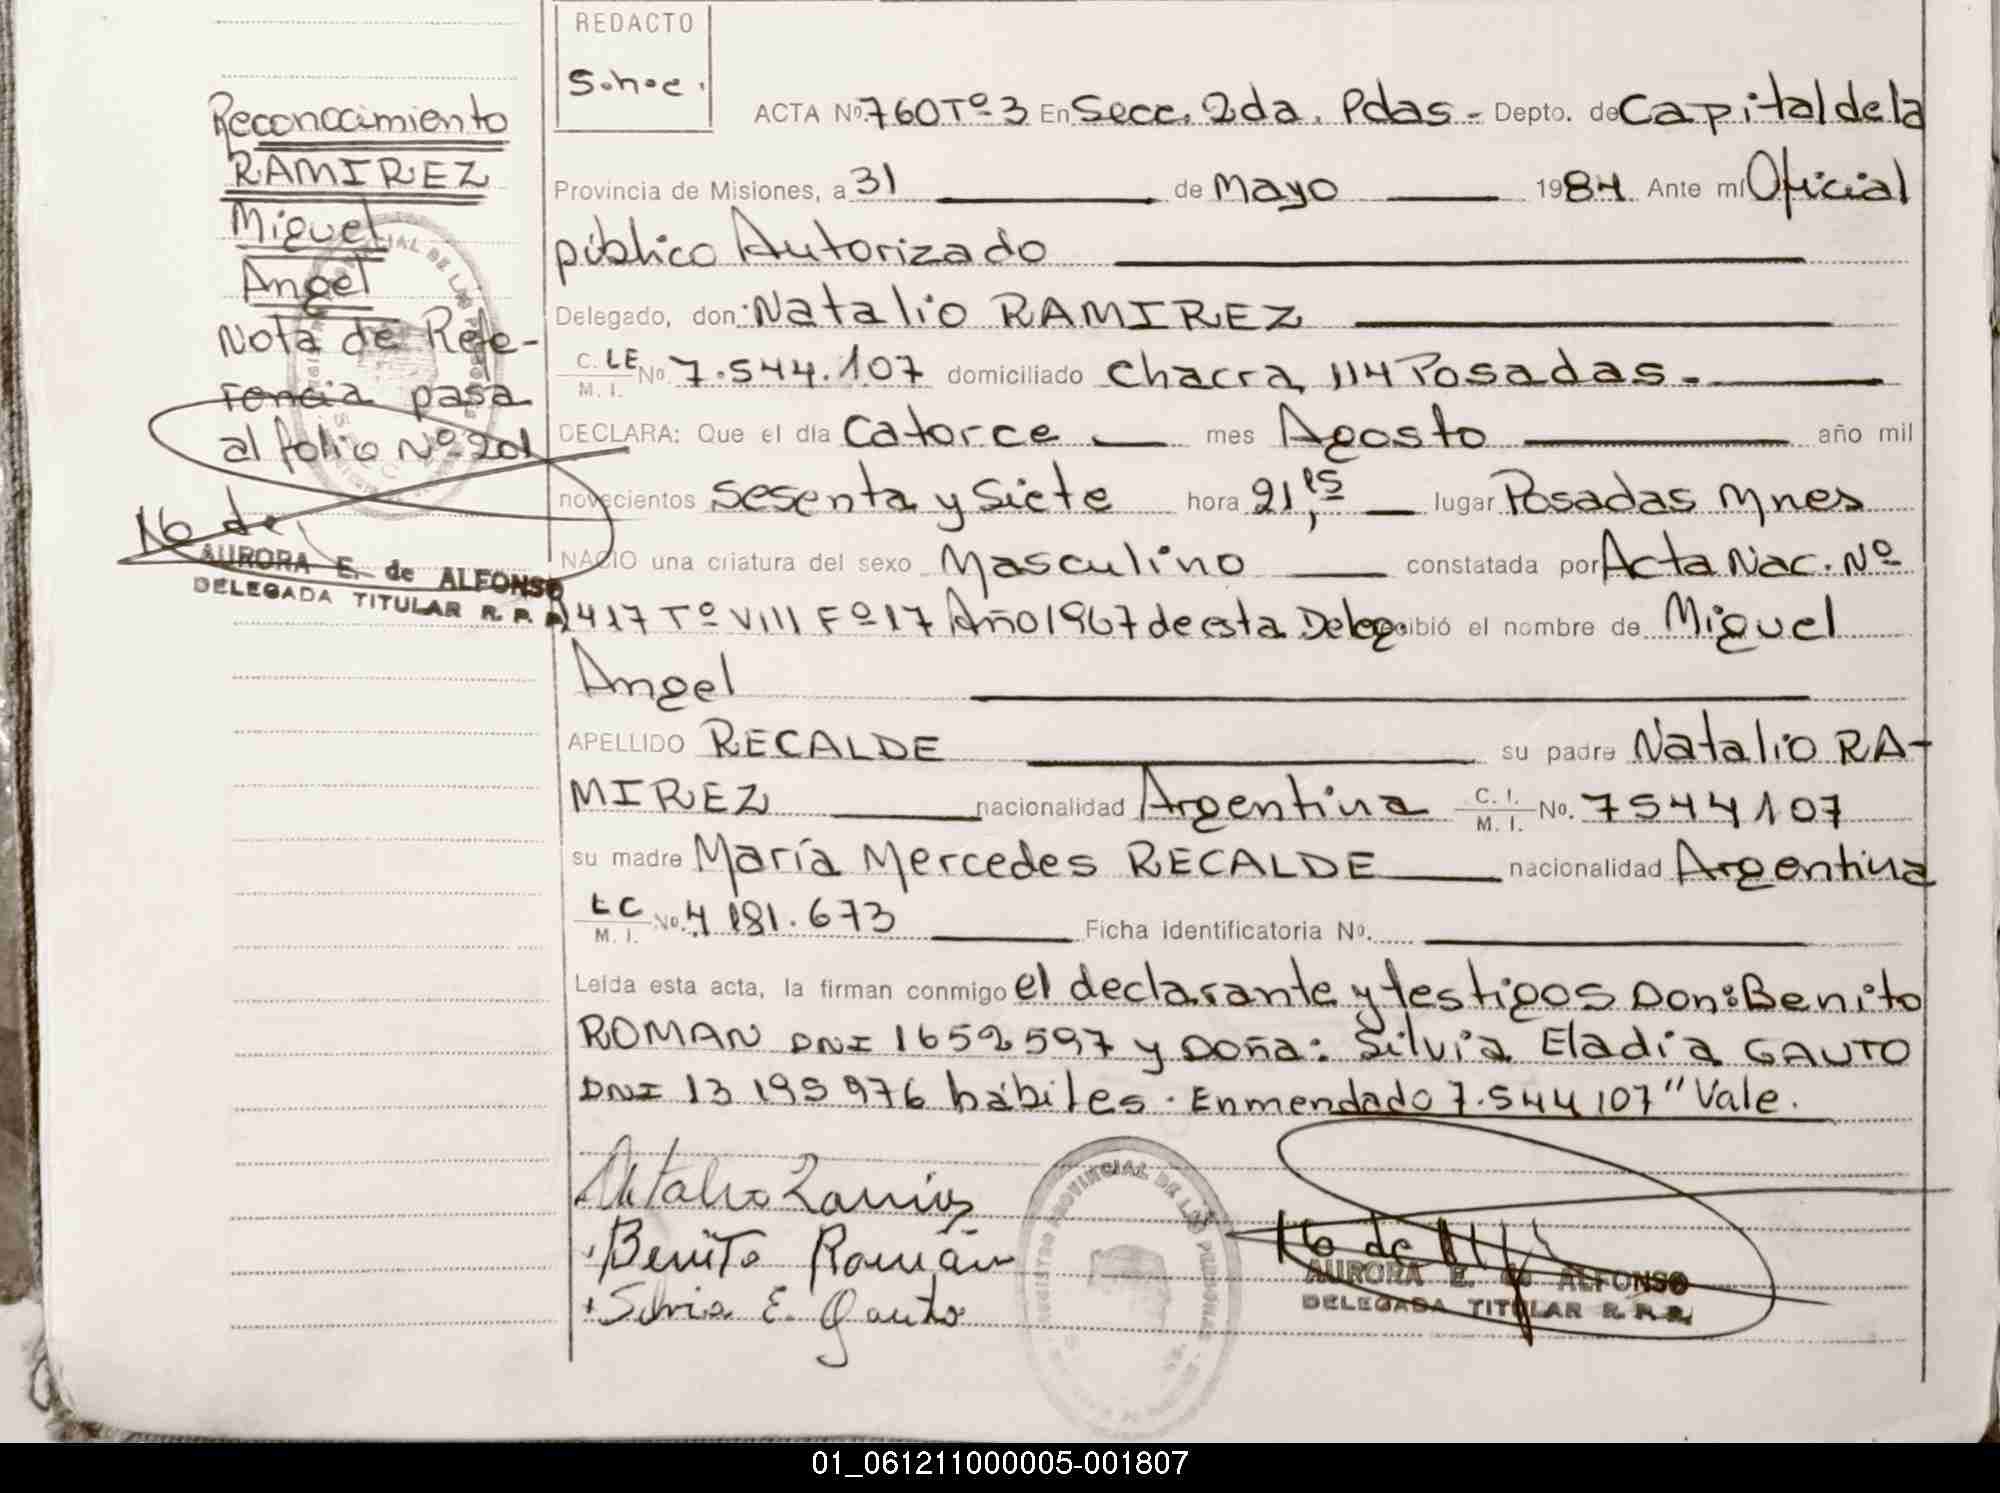 REDACTO
S.h.c.
Reconocimiento
RAMIREZ
Miguel
Angel
Nota de Refe-
rencia pasa
al folio Nº 201
AURORA E. de ALFONSO
DELEGADA TITULAR R. P. P.
ACTA Nº 760 Tº 3 En Secc. 2da. Pdas - Depto. de Capital de la
Provincia de Misiones, a 31 de Mayo 1984 Ante mí Oficial
público Autorizado
Delegado, don: Natalio RAMIREZ
C. LE M. I. Nº 7.544.107 domiciliado Chacra 114 Posadas.-
DECLARA: Que el día Catorce mes Agosto año mil
novecientos Sesenta y Siete hora 21,15 lugar Posadas Mnes
NACIO una criatura del sexo Masculino constatada por Acta Nac. Nº
1417 Tº VIII Fº 17 Año 1967 de esta Deleg. recibió el nombre de Miguel
Angel
APELLIDO RECALDE su padre Natalio RA-
MIREZ nacionalidad Argentina C. I. M. I. No. 7544107
su madre María Mercedes RECALDE nacionalidad Argentina
LC M. I. No. 4 181.673 Ficha identificatoria Nº.
Leída esta acta, la firman conmigo el declarante y testigos Don: Benito
ROMAN DNI 1652597 y Doña: Silvia Eladia GAUTO
DNI 13 195 976 hábiles. Enmendado 7.544107" Vale.
Natalio Ramirez
Benito Román
Silvia E. Gauto
REGISTRO PROVINCIAL DE LAS PERSONAS
AURORA E. de ALFONSO
DELEGADA TITULAR R. P. P.
01_061211000005-001807